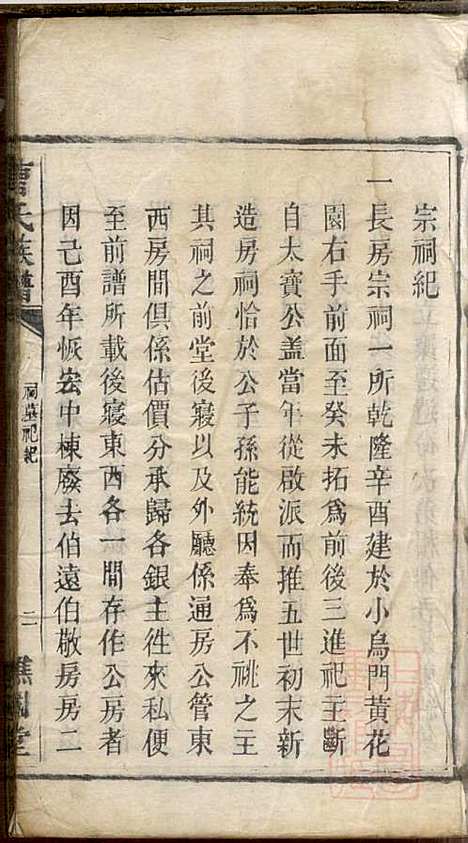 宗祠紀
一長房宗祠一所乾隆辛酉建於小烏門黃花
園右手前面至癸未拓爲前後三進祀主斷
自太寶公盖當年從啟派而推五世初末新
造房祠恰於公子孫能統因奉爲不祧之主
其祠之前堂後寢以及外廳係通房公管東
西房間俱係估價分承歸各銀主徃來私便
至前譜所載後寢東西各一間存作公房者
因己酉年恢宏中棟廢去伯遠伯敬房房二
氏族譜
祠墓祀紀
二
堂